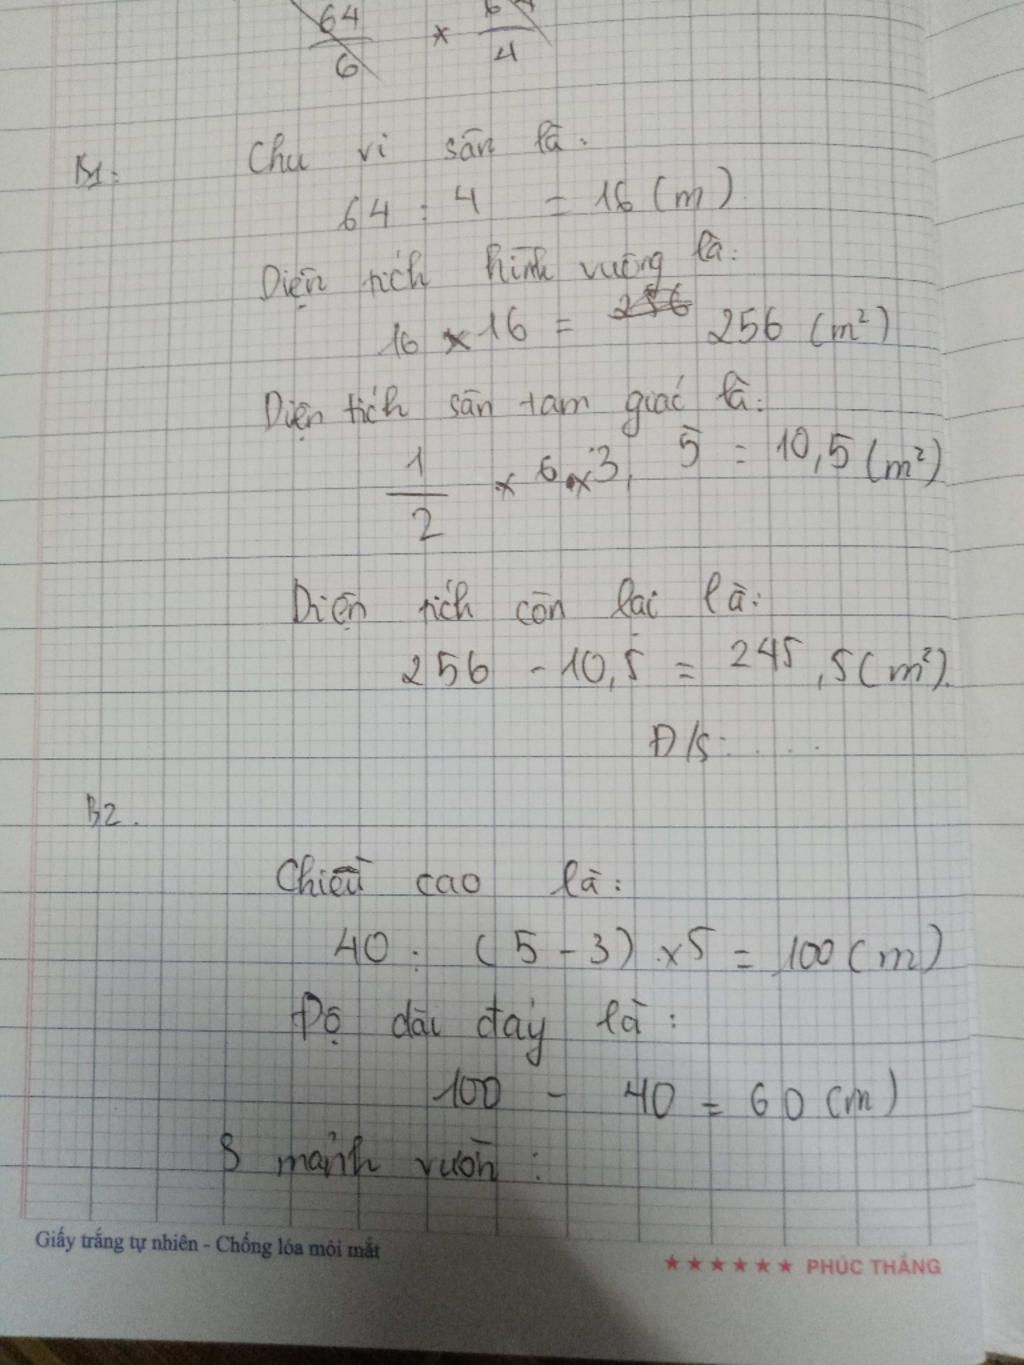 64/6 * 64/4
B1: Chu vi sân là:
64 : 4 = 16 (m)
Diện tích hình vuông là:
16 x 16 = 256 256 (m²)
Diện tích sân tam giác là:
1/2 x 6 x 3,5 = 10,5 (m²)
Diện tích còn lại là:
256 - 10,5 = 245,5 (m²).
Đ/S: ....
B2.
Chiều cao là:
40 : (5 - 3) x 5 = 100 (m)
Độ dài đáy là:
100 - 40 = 60 (m)
S mảnh vườn:
Giấy trắng tự nhiên - Chống lóa mỏi mắt
★★★★★★ PHÚC THẮNG